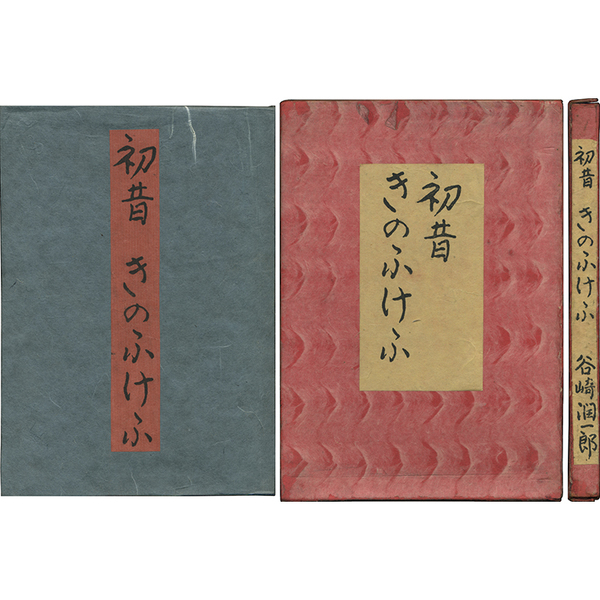 初昔 きのふけふ
初昔
きのふけふ
初昔 きのふけふ 谷崎潤一郎